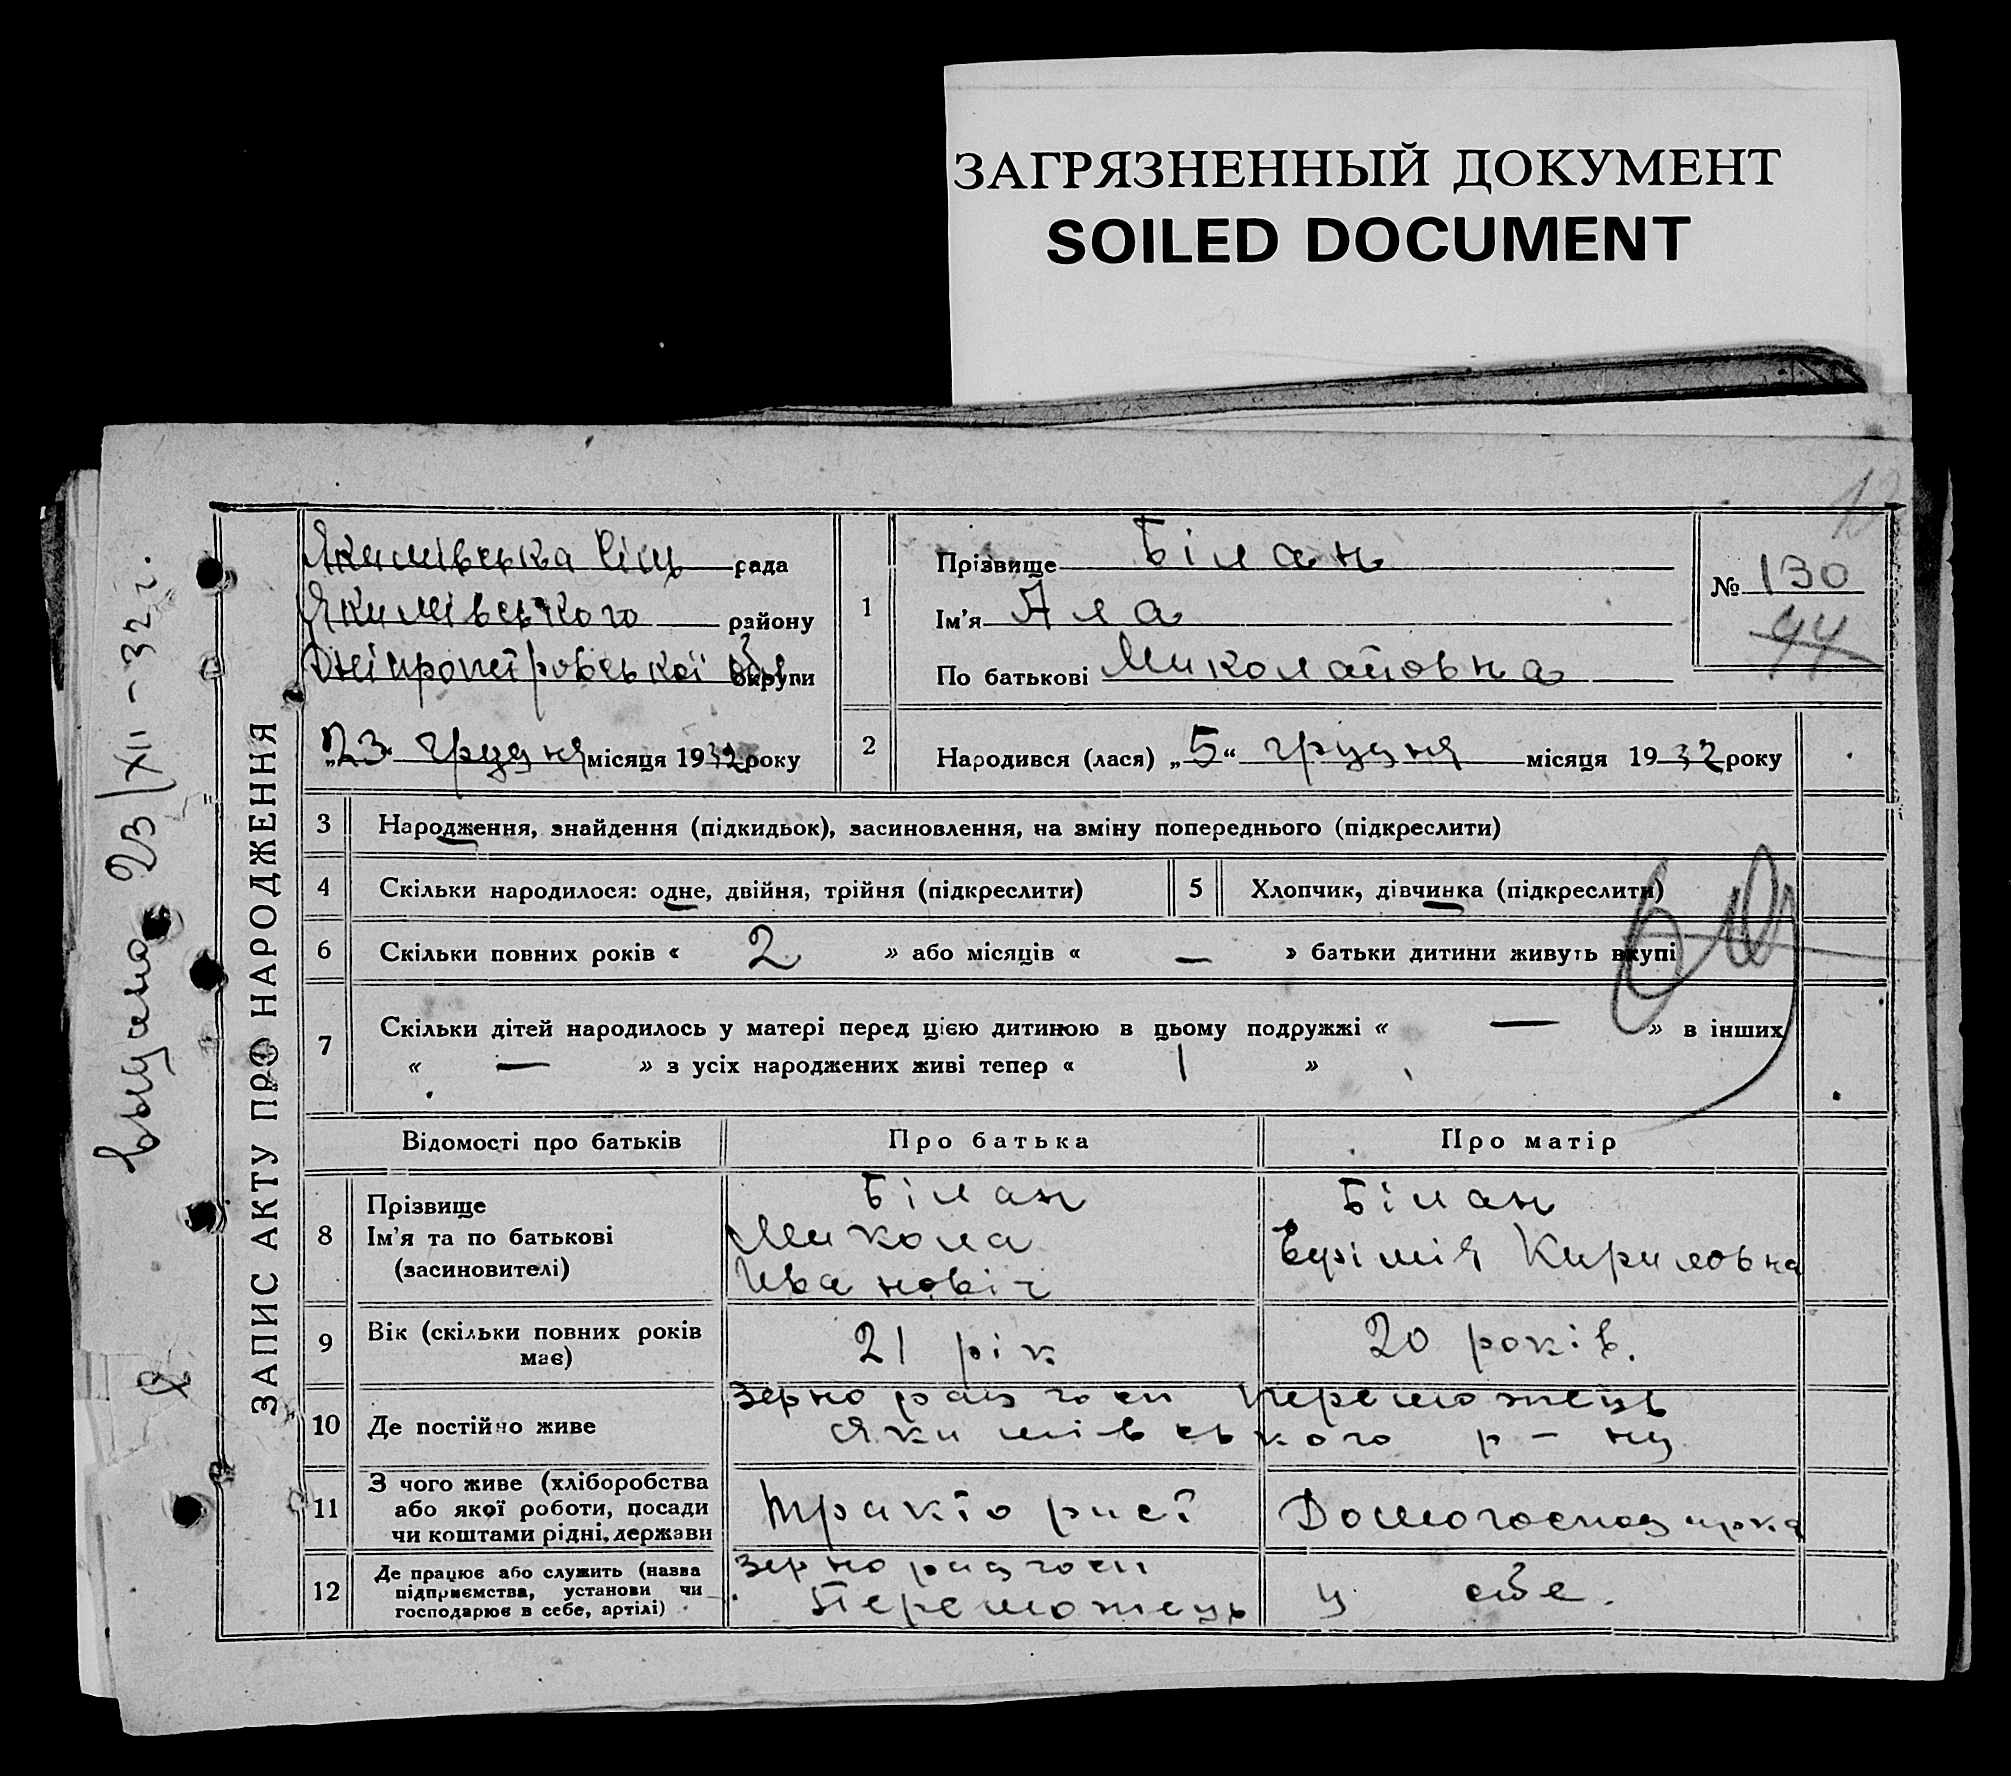 ЗАГРЯЗНЕННЫЙ ДОКУМЕНТ
SOILED DOCUMENT
ЗАПИС АКТУ ПРО НАРОДЖЕННЯ
23/XII-32 г.
Якимівська рада
Якимівського району
Дніпропетровської округи
„23 грудня місяця 1932 року
1
Прізвище Білан
Ім'я Ала
По батькові Миколайовна
№ 130
44
2
Народився (лася) „5“ грудня місяця 1932 року
3 Народження, знайдення (підкидьок), засиновлення, на зміну попереднього (підкреслити)
4 Скільки народилося: одне, двійня, трійня (підкреслити)
5 Хлопчик, дівчинка (підкреслити)
6 Скільки повних років « 2 » або місяців « — » батьки дитини живуть вкупі
7 Скільки дітей народилось у матері перед цією дитиною в цьому подружжі « — » в інших
« — » з усіх народжених живі тепер « 1 »
Відомості про батьків Про батька Про матір
8 Прізвище
Ім'я та по батькові
(засиновителі)
Білан
Микола
Іванович
Білан
Евфімія Кириловна
9 Вік (скільки повних років
має)
21 рік
20 років.
10 Де постійно живе
Зернорадгосп Переможець
Якимівського р-ну
11 З чого живе (хліборобства
або якої роботи, посади
чи коштами рідні, держави
Тракторист
Домогосподарка
12 Де працює або служить (назва
підприємства, установи чи
господарює в себе, артілі)
Зернорадгосп
Переможець
у себе.